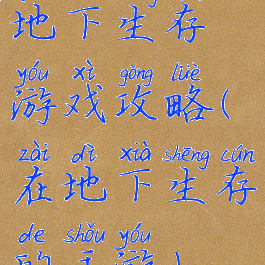 地下生存
yóu xì gōng lüè
游戏攻略(
zài dì xià shēng cún
在地下生存
de shǒu yóu
的手游)